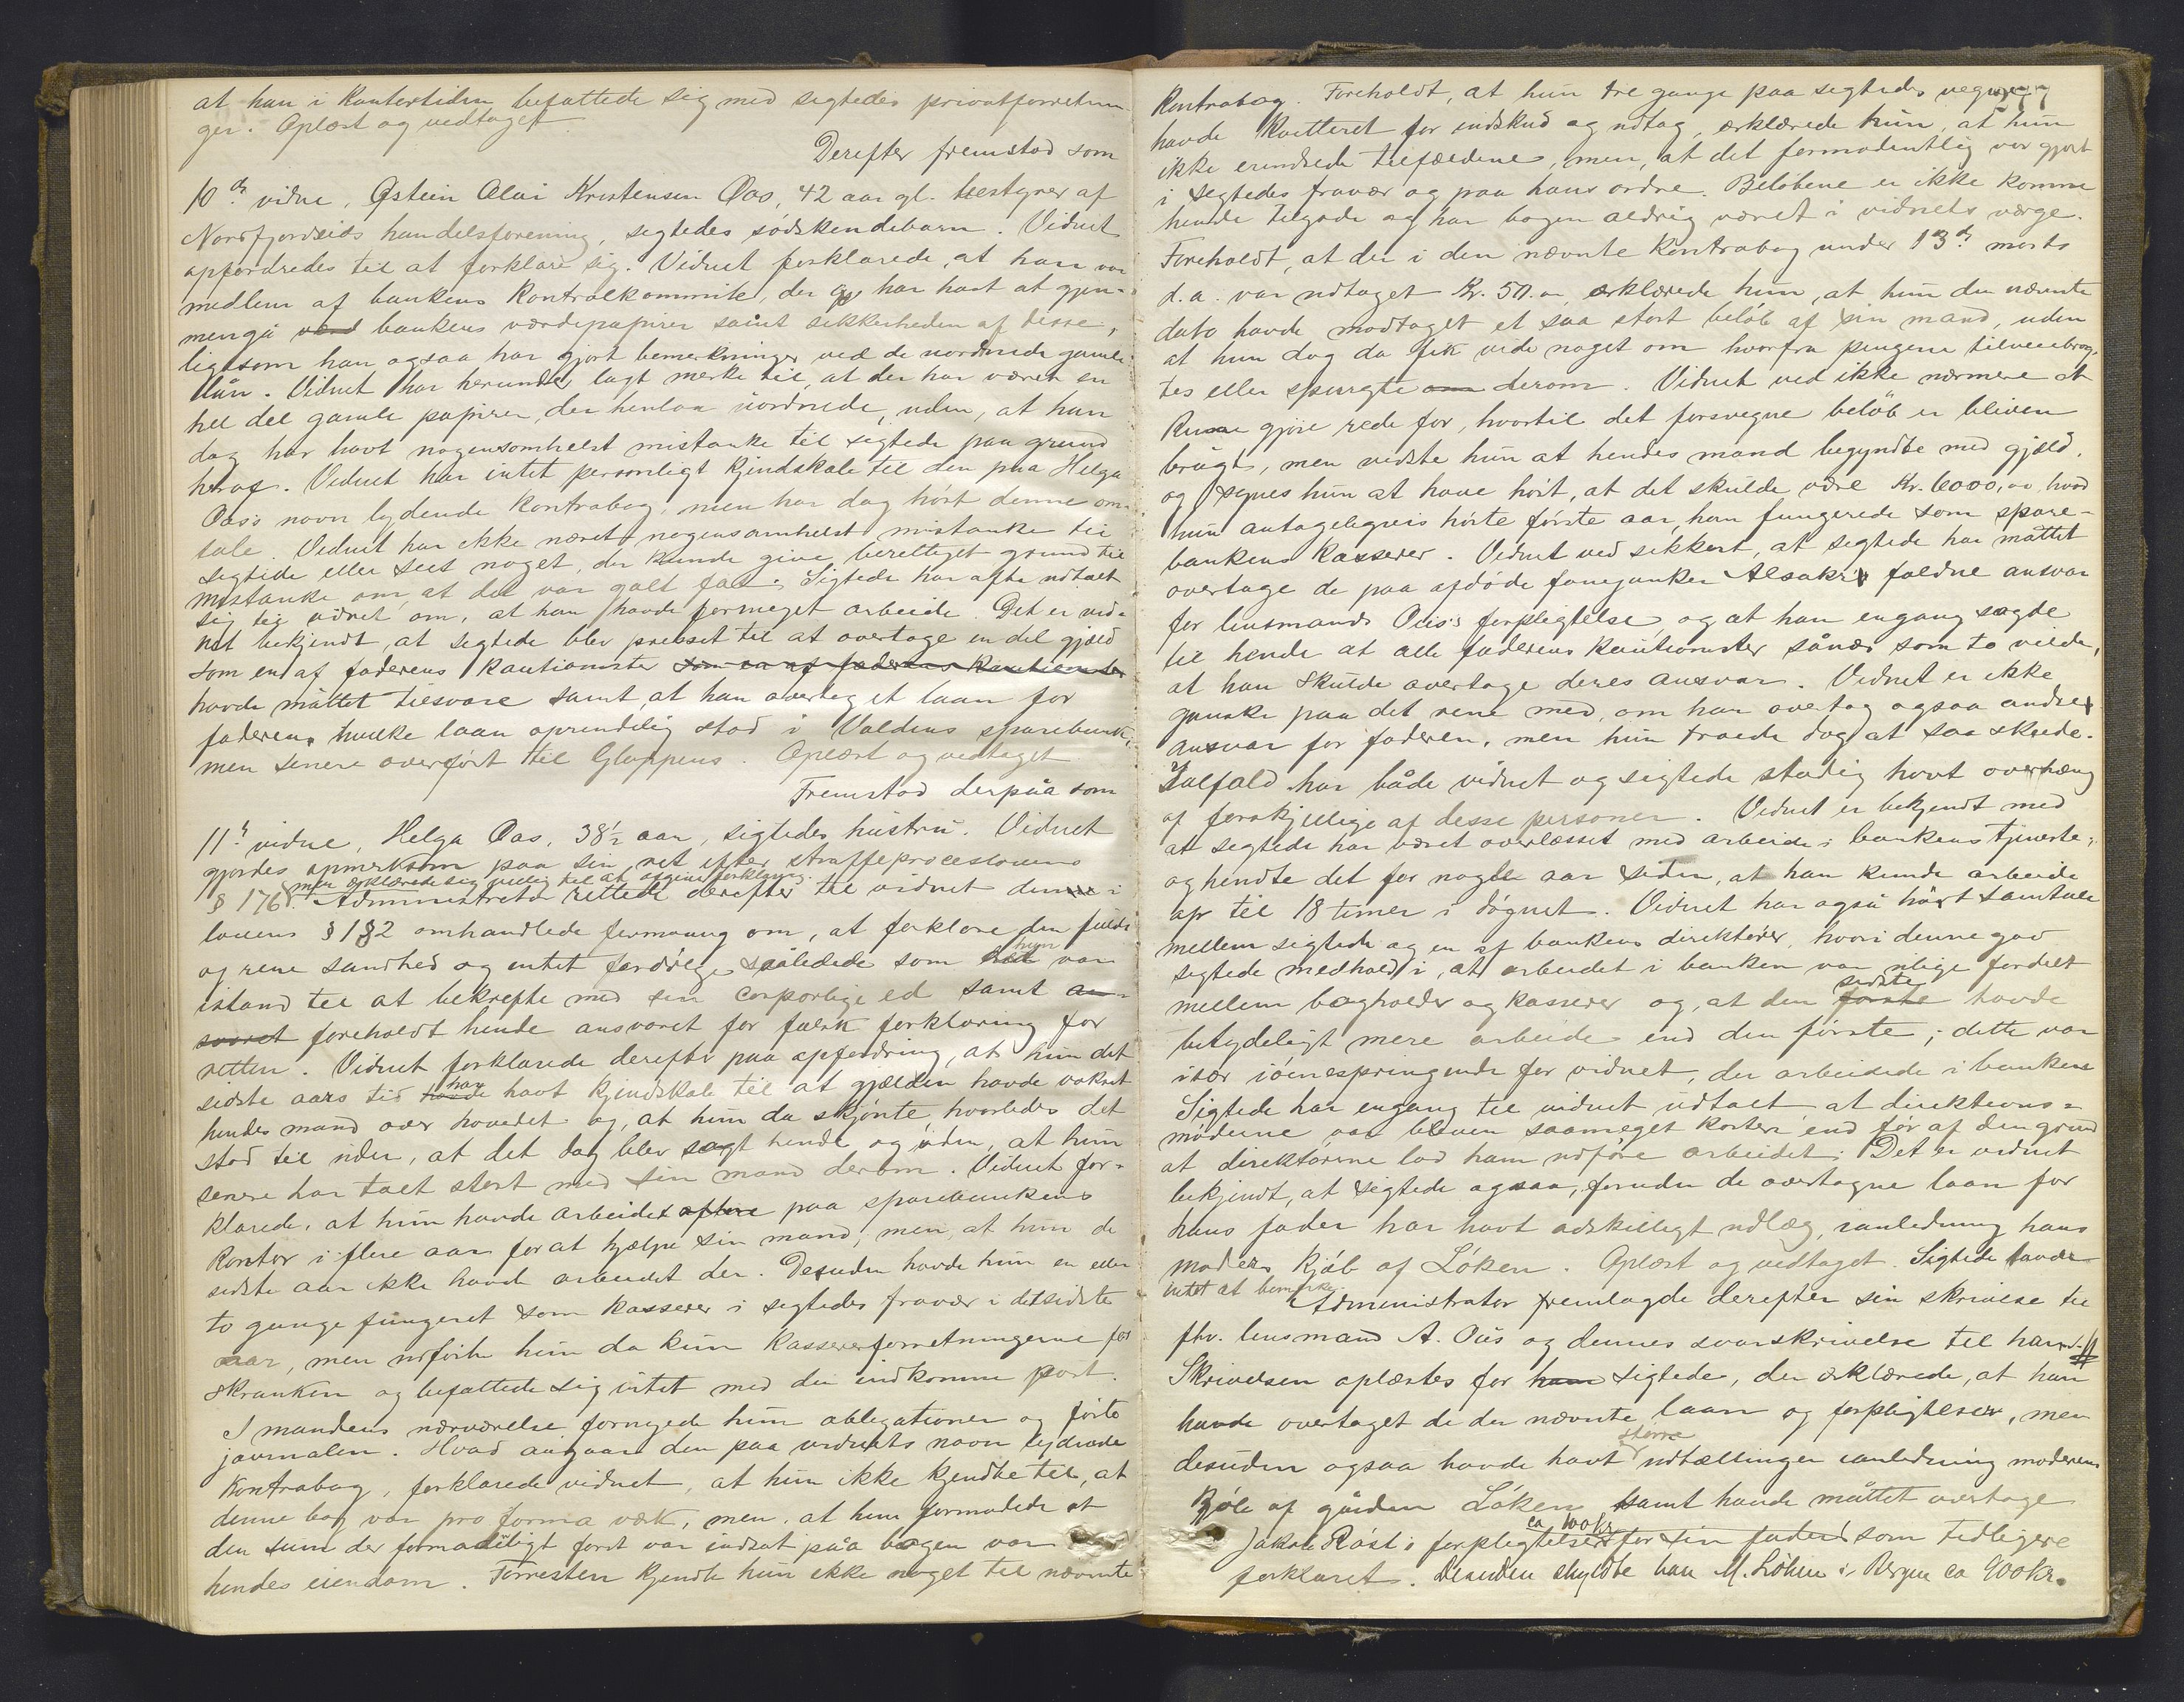 at han i kontortiden befattede sig med sigtedes privatforretnin-
ger. Oplæst og vedtaget
Derefter fremstod som
10de vidne, Østein Olai Kristensen Oos, 42 aar gl. bestyrer af
Nordfjordeids handelsforening, sigtedes sødskendebarn. Vidnet
opfordredes til at forklare sig. Vidnet forklarede, at han var
medlem af bankens kontrolkommite, der har havt at gjen-
nemgå bankens værdipapirer samt sikkerheden af disse,
ligesom han ogsaa har gjort bemerkninger ved de uordnede gamle
lån. Vidnet har herunder lagt merke til, at der har været en
hel del gamle papirer, der henlaa uordnede, uden, at han
dog har havt nogensomhelst mistanke til sigtede paa grund
heraf. Vidnet har intet personligt kjendskab til den paa Helga
Oos's navn lydende kontrabog, men har dog hørt denne om-
tale. Vidnet har ikke næret nogensomhelst mistanke til
sigtede eller seet noget, der kunde give berettiget grund til
mistanke om, at det var galt fat. Sigtede har ofte udtalt
sig til vidnet om, at han havde formeget arbeide. Det er vid-
net bekjendt, at sigtede blev presset til at overtage en del gjæld
som en af faderens kautionister som en af faderens kautionister
havde måttet tilsvare samt, at han overtog et laan for
faderen, hvilke laan oprindelig stod i Voldens sparebank,
men senere overført til Gloppens. Oplæst og vedtaget
Fremstod derpåa som
11te vidne, Helga Oos, 38½ aar, sigtedes hustru. Vidnet
gjordes opmerksom paa sin ret efter straffeproceslovens
men erklærede sig villig til at afgive forklaring.
§ 176. Administrator rettede derefter til vidnet denne i
lovens § 182 omhandlede formaning om, at forklare den fulde
og rene sandhed og intet fordølge, således som hun var
istand til at bekrefte med sin corporlige ed samt an-
svaret foreholdt hende ansvaret for falsk forklaring for
retten. Vidnet forklarede derefter paa opfordring, at hun det
sidste aars tid havde har havt kjendskab til at gjælden havde vokset
hendes mand over hovedet og, at hun da skjønte, hvorledes det
stod til uden, at det dog blev sagt hende og uden, at hun
senere har talt stort med sin mand derom. Vidnet for-
klarede, at hun havde arbeidet oftere paa sparebankens
kontor i flere aar for at hjælpe sin mand, men, at hun de
sidste aar ikke havde arbeidet der. Desuden havde hun en eller
to gange fungeret som kasserer i sigtedes fravær i det sidste
aar, men udførte hun da kun kassererforretningerne for
skranken og befattede sig intet med den indkomne post.
I mandens nærværelse fornyede hun obligationer og førte
journalen. Hvad angaar den paa vidnets navn lydende
kontrabog, forklarede vidnet, at hun ikke kjendte til, at
denne bog var pro forma verk, men, at hun formodede at
den sum der formodentligt først var indsat påa bogen var
hendes eiendom. Forresten kjendte hun ikke noget til nævnte
kontrabog. Foreholdt, at hun tre gange paa sigtedes vegne
havde kvitteret for indskud og udtog, erklærede hun, at hun
ikke erindrede tilfældene, men, at det formodentlig var gjort
i sigtedes fravær og paa hans ordre. Beløbene er ikke komne
hende tilgode og har bogen aldrig været i vidnets værge.
Foreholdt, at der i den nævnte kontrabog under 13de marts
d.a. var udtaget Kr. 50.00, erklærede hun, at hun den nævnte
dato havde modtaget et saa stort beløb af sin mand, uden
at hun dog da fik vide noget om hvorfra pengene tilveiebrag-
tes eller spurgte om derom. Vidnet ved ikke nærmere at
kunne gjøre rede for, hvortil det forsvegne beløb er bleven
brugt, men vidste hun at hendes mand begyndte med gjæld,
og synes hun at have hørt, at det skulde være Kr. 6000,00, hvad
hun antageligvis hørte første aar, han fungerede som spare-
bankens kasserer. Vidnet ved sikkert, at sigtede har måttet
overtage de paa afdøde fanejunker Alsaker faldne ansvar
for lensmand Oos's forpligtelse, og at han engang sagde
til hende at alle faderens kautionister sånær som to vilde,
at han skulde overtage deres ansvar. Vidnet er ikke
ganske paa det rene med, om han overtog ogsaa andres
ansvar for faderen, men hun troede dog at saa skede.
Ialfald har både vidnet og sigtede stadig havt overhæng
af forskjellige af disse personer. Vidnet er bekjendt med
at sigtede har været overlæsset med arbeide i bankens tjeneste,
og hendte det for nogle aar siden, at han kunde arbeide
op til 18 timer i døgnet. Vidnet har også hørt samtale
mellem sigtede og en af bankens direktører, hvori denne gav
sigtede medhold i, at arbeidet i banken var ulige fordelt
mellem bogholder og kasserer og, at den første sidste havde
betydeligt mere arbeide end den første; dette var
især iøienespringende for vidnet, der arbeidede i banken
Sigtede har engang til vidnet udtalt at direktions-
møderne var bleven saameget kortere end før af den grund
at direktørerne lod ham udføre arbeidet. Det er vidnet
bekjendt, at sigtede ogsaa, foruden de overtagne laan for
hans fader har havt adskilligt udlæg, ianledning hans
moders kjøb af Løken. Oplæst og vedtaget. Sigtede havde
intet at bemerke.
Administrator fremlagde derefter sin skrivelse til
fhv. lensmand A. Oos og dennes svarskrivelse til ham.
Skrivelsen oplæstes for ham sigtede, der erklærede, at han
havde overtaget de der nævnte laan og forpligtelser, men
desuden ogsaa havde havt større udtællinger ianledning moderens
kjøb af gården Løken samt havde måttet overtage
Jakob Røst's forpligtelser ca 100 kr for sin fader som tidligere
forklaret. Desuden skyldte han M. Løken i Bergen ca 900 kr.